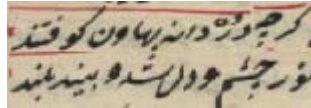 گرچه در دانه بهاون کوفتند
نور چشم و دل شد و بیند بلند